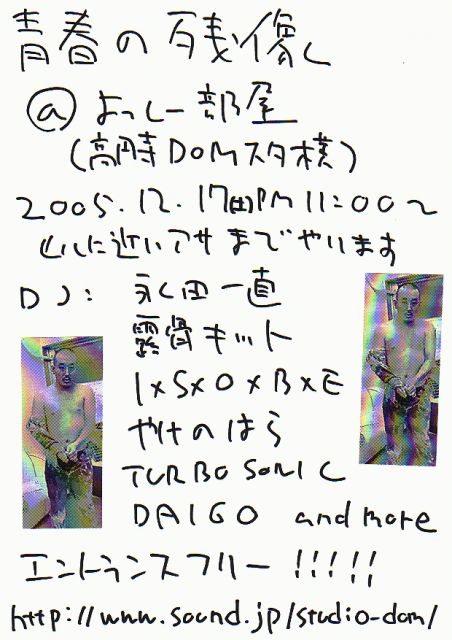 青春の残像
@よっしー部屋
(高円寺DOMスタ横)
2005.12.17(土)PM11:00〜
に近いアサまでやります
DJ: 永田一直
露骨キット
I×S×O×B×E
やけのはら
TURBO SONIC
DAIGO and more
エントランスフリー!!!!!
http://www.sound.jp/studio-dom/